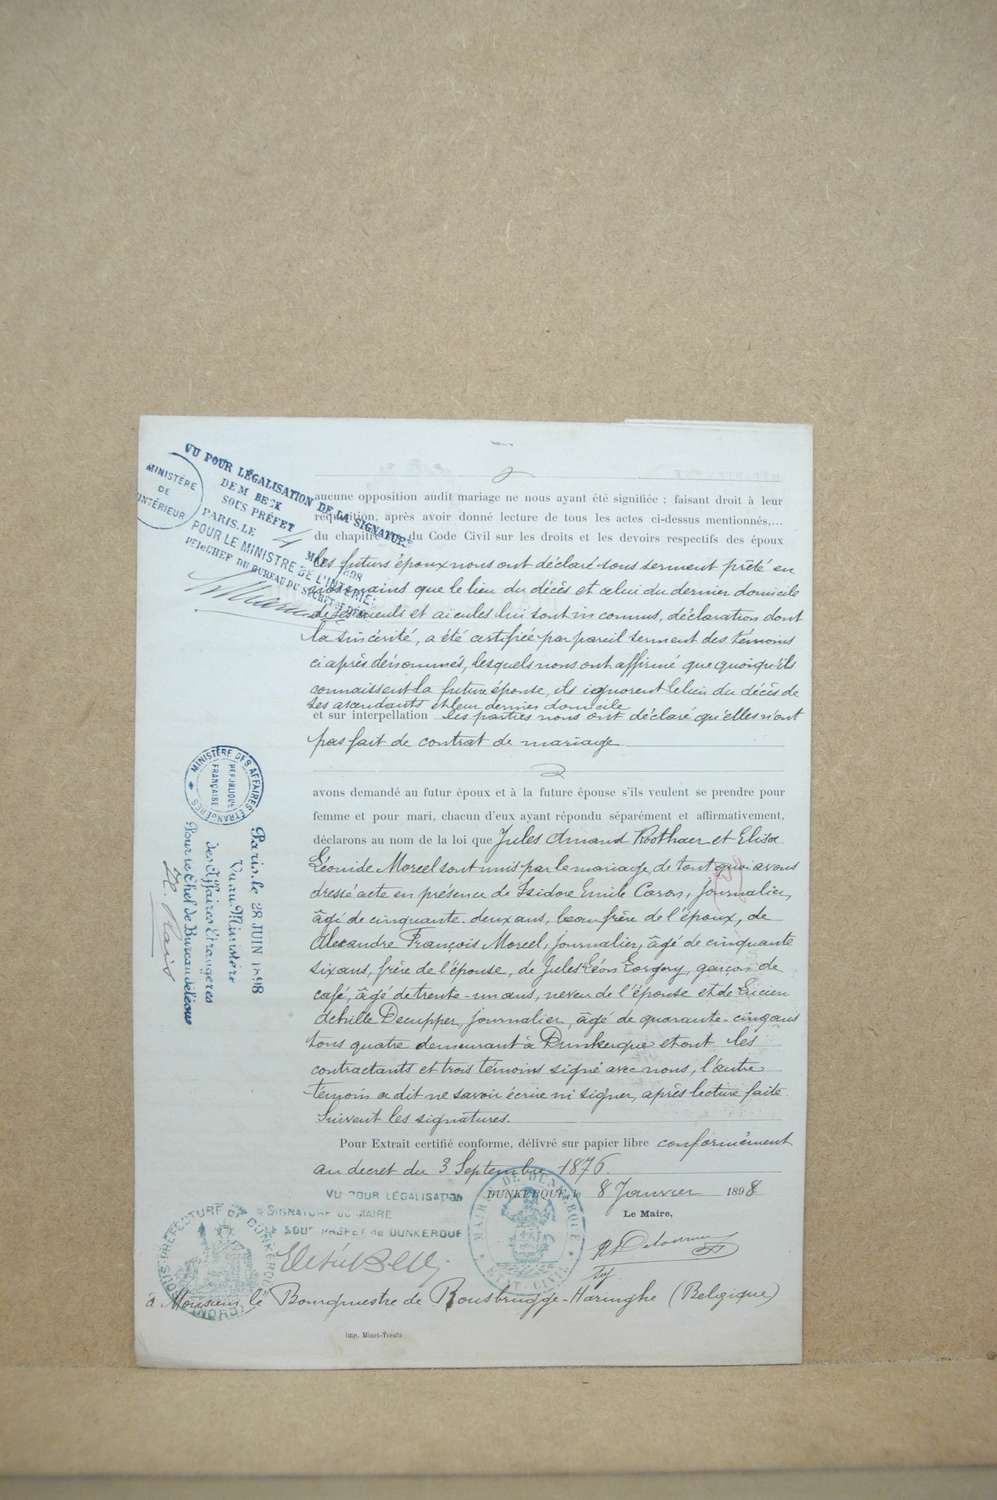 VU POUR LÉGALISATION DE LA SIGNATURE
DE M BECK
SOUS PRÉFET
PARIS, LE 4 MARS 1898
POUR LE MINISTRE DE L'INTÉRIEUR
MINISTÈRE
DE
L'INTÉRIEUR
aucune opposition audit mariage ne nous ayant été signifiée ; faisant droit à leur
réquisition, après avoir donné lecture de tous les actes ci-dessus mentionnés....
du chapitre du Code Civil sur les droits et les devoirs respectifs des époux
les futurs époux nous ont déclaré sous serment prêté en
nos mains que le lieu du décès et celui du dernier domicile
de ses aïeuls et aïeules lui sont inconnus, déclaration dont
la sincérité, a été certifiée par pareil serment des témoins
ci après dénommés, lesquels nous ont affirmé que quoiqu'ils
connaissent la future épouse, ils ignorent le lieu du décès de
ses ascendants et leur dernier domicile
et sur interpellation les parties nous ont déclaré qu'elles n'ont
pas fait de contrat de mariage
avons demandé au futur époux et à la future épouse s'ils veulent se prendre pour
femme et pour mari, chacun d'eux ayant répondu séparément et affirmativement,
déclarons au nom de la loi que Jules Amand Koothaer et Elisa
Léonide Morcel sont unis par le mariage, de tout quoi avons
dressé acte en présence de Isidore Emile Caron, journalier,
âgé de cinquante-deux ans, beau frère de l'époux, de
Alexandre François Morcel, journalier, âgé de cinquante
six ans, frère de l'épouse, de Jules Léon garçon de
café, âgé de trente-un ans, neveu de l'épouse et de Lucien
Achille Decupper, journalier, âgé de quarante-cinq ans
tous quatre demeurant à Dunkerque et ont les
contractants et trois témoins signé avec nous, l'autre
témoin a dit ne savoir écrire ni signer, après lecture faite.
Suivent les signatures.
Pour Extrait certifié conforme, délivré sur papier libre conformément
au décret du 3 Septembre 1876.
DUNKERQUE, le 8 Janvier 1898
Le Maire,
MAIRIE DE DUNKERQUE
ETAT CIVIL
VU POUR LÉGALISATION
SIGNATURE DU MAIRE
LE SOUS PRÉFET de DUNKERQUE
SOUS-PRÉFECTURE DE DUNKERQUE
(NORD)
à Monsieur le Bourgmestre de Rousbrugge-Haringhe (Belgique)
Imp. Minet-Tresfu
MINISTÈRE DES AFFAIRES ÉTRANGÈRES
RÉPUBLIQUE
FRANÇAISE
Paris, le 28 JUIN 1898
Vu au Ministère
des Affaires Etrangères
Pour le Chef de Bureau délégué